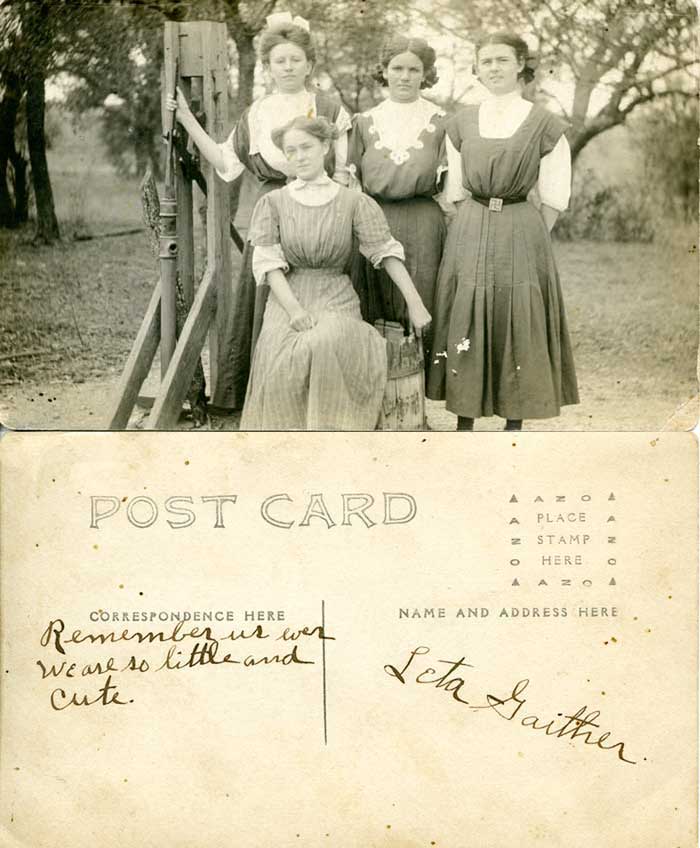 POST CARD
AZO
PLACE
STAMP
HERE
AZO
AZO
AZO
CORRESPONDENCE HERE
NAME AND ADDRESS HERE
Remember us ever
We are so little and
Cute.
Leta Gaither.